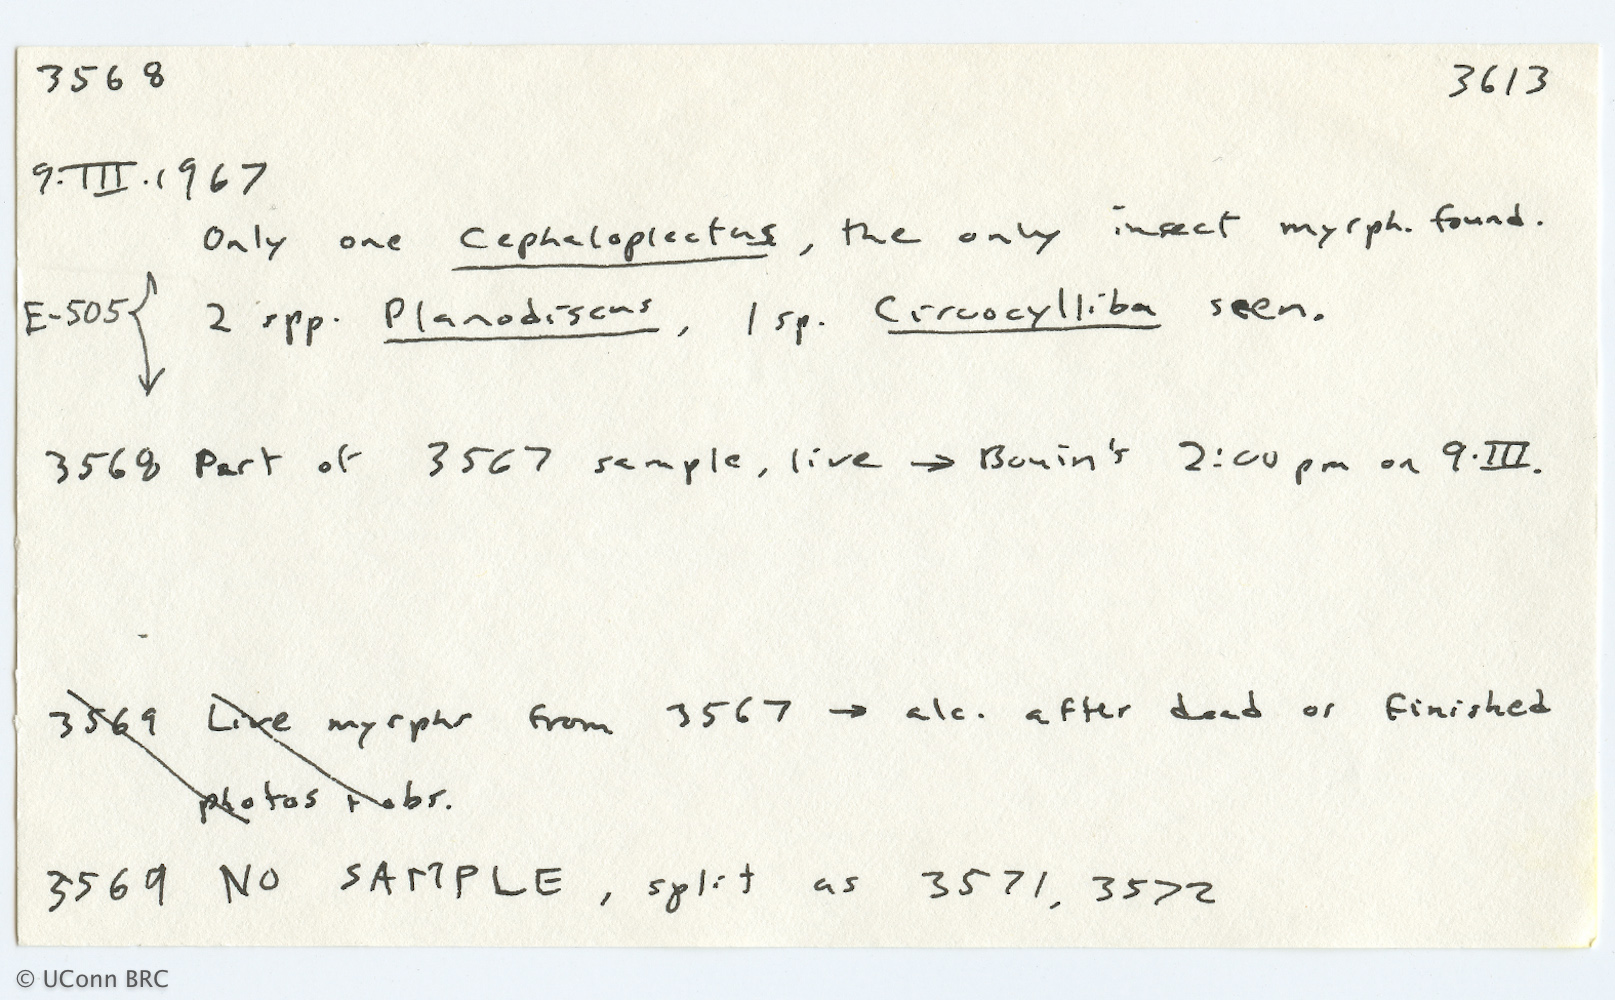 3568 3613
9.III.1967
Only one Cephaloplectus, the only insect myrph. found.
E-505 2 spp. Planodiscus, 1 sp. Circocylliba seen.
3568 Part of 3567 sample, live → Bouin's 2:00 pm on 9.III.
3569 Live myrphs from 3567 → alc. after dead or finished
photos + obs.
3569 NO SAMPLE, split as 3571, 3572
© UConn BRC